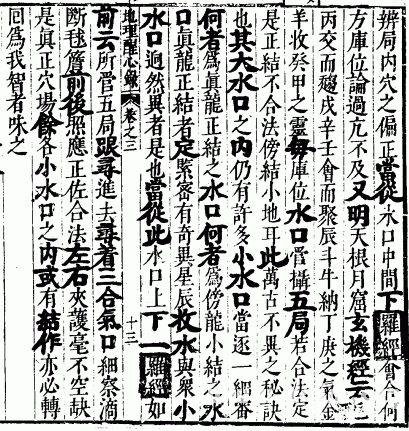 辨局内穴之偏正當從水口中間下羅經會合何
方庫位論過亢不及又明天根月窟玄機經云乙
丙交而趨戌辛壬會而聚辰斗牛納丁庚之氣金
羊收癸甲之靈每庫位水口管攝五局若合法定
是正結不合法傍結小地耳此萬古不異之秘訣
也其大水口之内仍有許多小水口當逐一細審
何者爲真龍正結之水口何者爲傍龍小結之水
口真龍正結者定緊密有奇異星辰收水與衆小
水口迥然異者是也當從此水口上下一羅經如
地理醒心錄 卷之三 十三
前云所管五局跟尋進去尋着三合氣口細察滴
斷毬簷前後照應正佐合法左右夾護毫不空缺
是真正穴場餘各小水口之内或有結作亦必轉
囘爲我智者味之